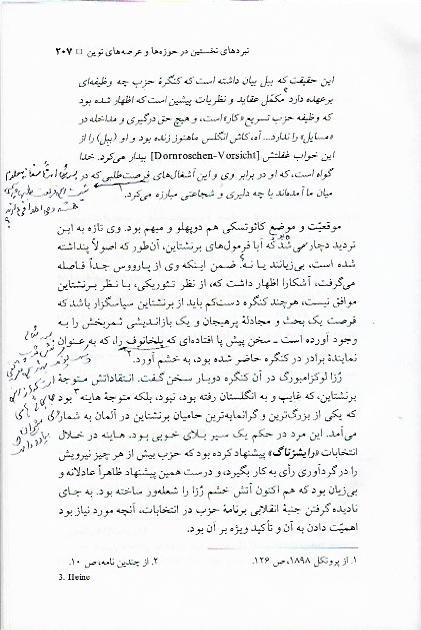 نبردهای نخستین در حوزه‌ها و عرصه‌های نوین □ ۲۰۷
این حقیقت که ببل بیان داشته است که کنگرهٔ حزب چه وظیفه‌ای
برعهده دارد مکمّل عقاید و نظریات پیشین است که اظهار شده بود
که وظیفه حزب تسریع «کار» است، و هیچ حق درگیری و مداخله در
«مسایل» را ندارد... آه، کاش انگلس ماهنوز زنده بود و او (ببل) را از
این خواب غفلتش [Dornroschen-Vorsicht] بیدار می‌کرد. خدا
گواه است، که او در برابر وی و این آشغال‌های فرصت‌طلبی که در
میان ما آمده‌اند با چه دلیری و شجاعتی مبارزه می‌کرد.
موقعیّت و موضع کائوتسکی هم دوپهلو و مبهم بود. وی تازه به این
تردید دچار می‌شد که آیا فرمول‌های برنشتاین، آن‌طور که اصولاً پنداشته
شده است، بی‌زیانند یا نه؟ ضمن اینکه وی از پارووس جداً فاصله
می‌گرفت، آشکارا اظهار داشت که، از نظر تئوریکی، با نظر برنشتاین
موافق نیست، هرچند کنگره دست‌کم باید از برنشتاین سپاسگزار باشد که
فرصت یک بحث و مجادلهٔ پرهیجان و یک بازاندیشی ثمربخش را به
وجود آورده است ـ سخن پیش پا افتاده‌ای که پلخانوف را، که به‌عنوان
نمایندهٔ برادر در کنگره حاضر شده بود، به خشم آورد.
رُزا لوکزامبورگ در آن کنگره دوبار سخن گفت. انتقاداتش متوجهٔ
برنشتاین، که غایب و به انگلستان رفته بود، نبود، بلکه متوجهٔ هاینه۳ بود
که یکی از بزرگ‌ترین و گرانمایه‌ترین حامیان برنشتاین در آلمان به شمار
می‌آمد. این مرد در حکم یک سپر بلای خوبی بود. هاینه در خلال
انتخابات «رایشزتاگ» پیشنهاد کرده بود که حزب بیش از هر چیز نیرویش
را در گردآوری رأی به کار بگیرد، و درست همین پیشنهاد ظاهراً عادلانه و
بی‌زیان بود که هم اکنون آتش خشم رُزا را شعله‌ور ساخته بود. به جای
نادیده گرفتن جنبهٔ انقلابی برنامهٔ حزب در انتخابات، آنچه مورد نیاز بود
اهمیّت دادن به آن و تأکید ویژه بر آن بود.
۱. از پروتکل ۱۸۹۸، ص ۱۲۶. ۲. از چندین نامه، ص ۱۰.
3. Heine